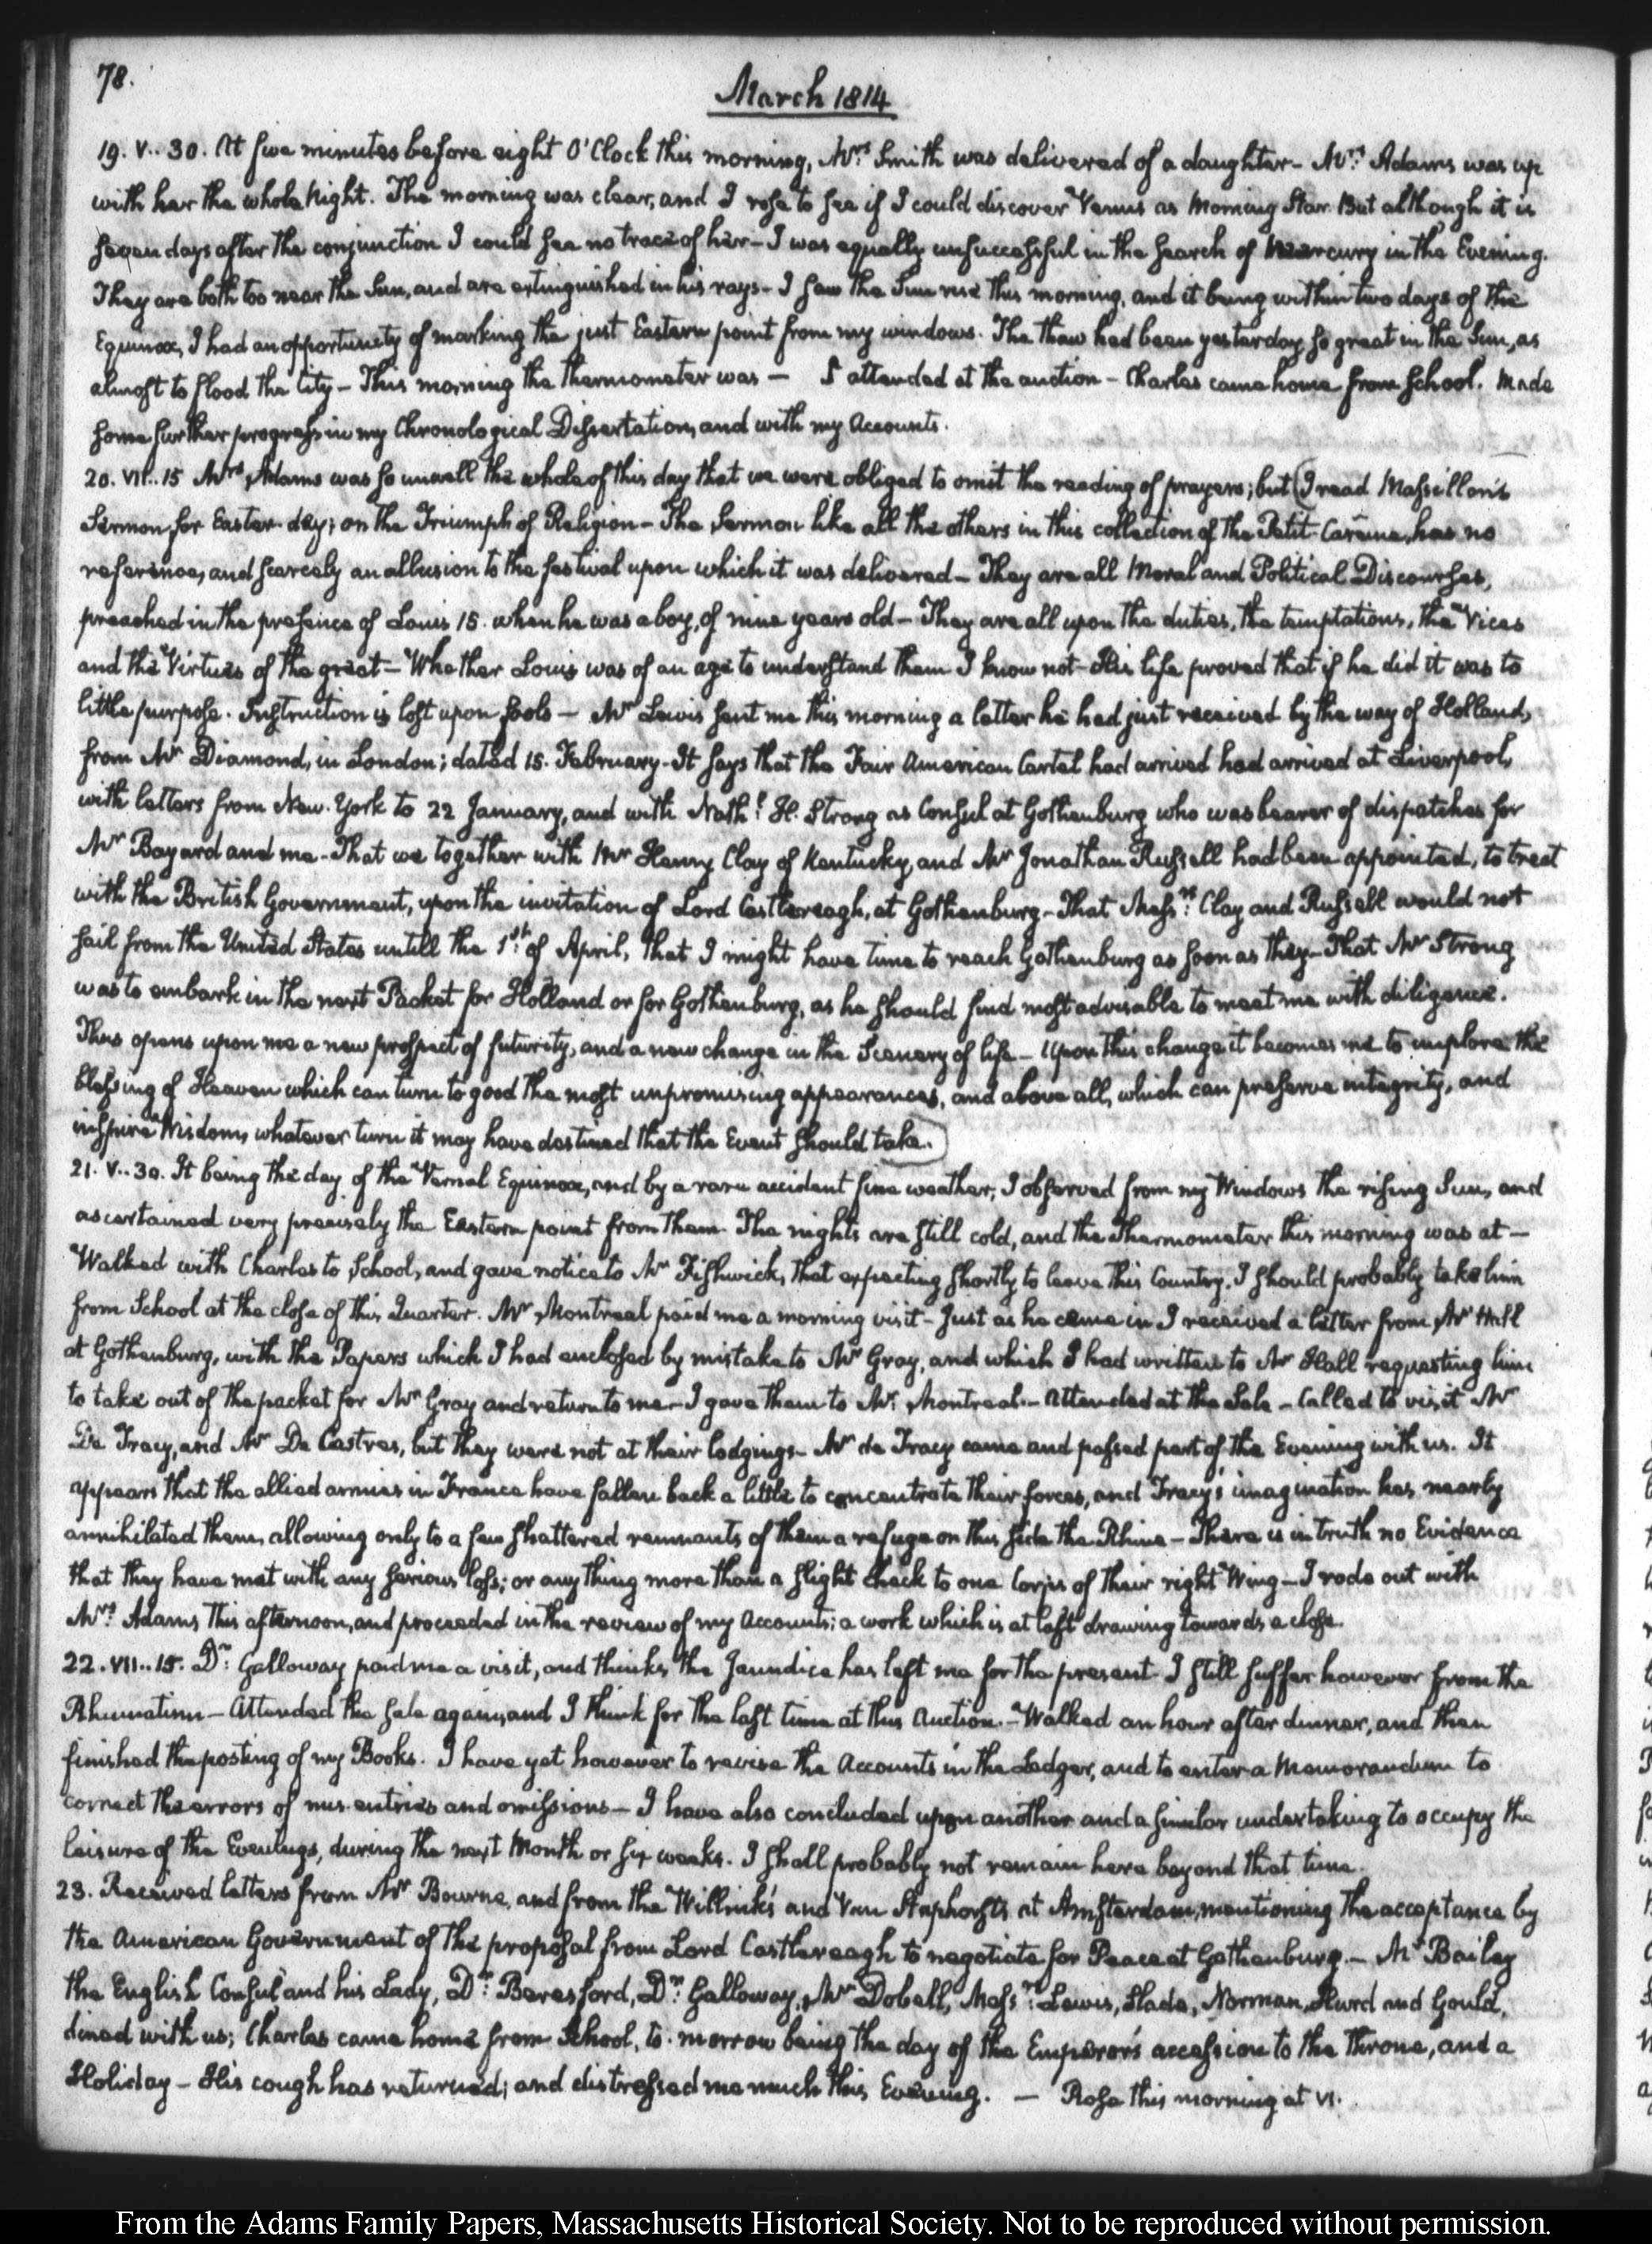 78.
March 1814
19. V..30. At five minutes before eight O'Clock this morning, Mrs Smith was delivered of a daughter— Mrs Adams was up
with her the whole Night. The morning was clear, and I rose to see if I could discover Venus as Morning Star. But although it is
seven days after the conjunction I could see no trace of her— I was equally unsuccessful in the search of Mercury in the Evening.
They are both too near the Sun, and are extinguished in his rays— I saw the Sun rise this morning, and it being within two days of the
Equinox, I had an opportunity of marking the just Eastern point from my windows. The thaw had been yesterday so great in the Sun, as
almost to flood the City— This morning the thermometer was — I attended at the auction— Charles came home from School. Made
some further progress in my Chronological Dissertation, and with my Accounts.
20. VII..15 Mrs Adams was so unwell the whole of this day that we were obliged to omit the reading of prayers; but (I read Massillon's
Sermon for Easter-day; on the Triumph of Religion— The Sermon like all the others in this collection of the Petit-Carême, has no
reference, and scarcely an allusion to the festival upon which it was delivered— They are all Moral and Political Discourses,
preached in the presence of Louis 15. when he was a boy, of nine years old— They are all upon the duties, the temptations, the Vices
and the Virtues of the great— Whether Louis was of an age to understand them I know not— His life proved that if he did it was to
little purpose. Instruction is lost upon fools— Mr Lewis sent me this morning a letter he had just received by the way of Holland,
from Mr Diamond, in London; dated 15. February— It says that the Fair American Cartel had arrived had arrived at Liverpool,
with letters from New-York to 22 January, and with Nathl H. Strong as Consul at Gothenburg who was bearer of dispatches for
Mr Bayard and me— That we together with Mr Henry Clay of Kentucky, and Mr Jonathan Russell had been appointed, to treat
with the British Government, upon the invitation of Lord Castlereagh, at Gothenburg— That Messrs Clay and Russell would not
sail from the United States untill the 1st of April, that I might have time to reach Gothenburg as soon as they— That Mr Strong
was to embark in the next Packet for Holland or for Gothenburg, as he should find most advisable to meet me with diligence.
Thus opens upon me a new prospect of futurity, and a new change in the Scenery of life— Upon this change it becomes me to implore the
blessing of Heaven which can turn to good the most unpromising appearances, and above all, which can preserve integrity, and
inspire Wisdom, whatever turn it may have destined that the Event should take.)
21. V..30. It being the day of the Vernal Equinox, and by a rare accident fine weather, I observed from my Windows the rising Sun, and
ascertained very precisely the Eastern point from them. The nights are still cold, and the Thermometer this morning was at —
Walked with Charles to School, and gave notice to Mr Fishwick, that expecting shortly to leave this Country, I should probably take him
from School at the close of this Quarter. Mr Montreal paid me a morning visit— Just as he came in I received a letter from Mr Hall
at Gothenburg, with the Papers which I had enclosed by mistake to Mr Gray, and which I had written to Mr Hall requesting him
to take out of the packet for Mr Gray and return to me— I gave them to Mr Montreal.— Attended at the Sale— Called to visit Mr
De Tracy, and Mr De Castres, but they were not at their lodgings— Mr de Tracy came and passed part of the Evening with us. It
appears that the allied armies in France have fallen back a little to concentrate their forces, and Tracy's imagination has nearly
annihilated them, allowing only to a few shattered remnants of them a refuge on this side the Rhine— There is in truth no Evidence
that they have met with any serious loss; or any thing more than a slight check to one Corps of their right Wing— I rode out with
Mrs Adams this afternoon, and proceeded in the review of my Accounts; a work which is at last drawing towards a close.
22. VII..15. Dr Galloway paid me a visit, and thinks the Jaundice has left me for the present— I still suffer however from the
Rhumatism— Attended the sale again, and I think for the last time at this Auction.— Walked an hour after dinner, and then
finished the posting of my Books. I have yet however to revise the Accounts in the Ledger, and to enter a Memorandum to
correct the errors of mis-entries and omissions— I have also concluded upon another and a similar undertaking to occupy the
leisure of the Evenings, during the next Month or six weeks. I shall probably not remain here beyond that time.
23. Received letters from Mr Bourne, and from the Willinks and Van Staphorsts at Amsterdam, mentioning the acceptance by
the American Government of the proposal from Lord Castlereagh to negotiate for Peace at Gothenburg.— Mr Bailey
the English Consul and his Lady, Dr Beresford, Dr Galloway, Mr Dobell, Messrs Lewis, Slade, Norman, Hurd and Gould,
dined with us; Charles came home from School, to-morrow being the day of the Emperor's accession to the throne, and a
Holiday— His cough has returned; and distressed me much this Evening. — Rose this morning at VI.
From the Adams Family Papers, Massachusetts Historical Society. Not to be reproduced without permission.